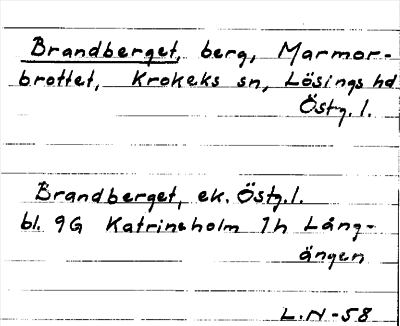 Brandberget, berg, Marmor-
brottet, Krokeks sn, Lösings hd
Östg. l.
Brandberget, ek. Östg. l.
bl. 9G Katrineholm 1h Lång-
ängen
L.N-58